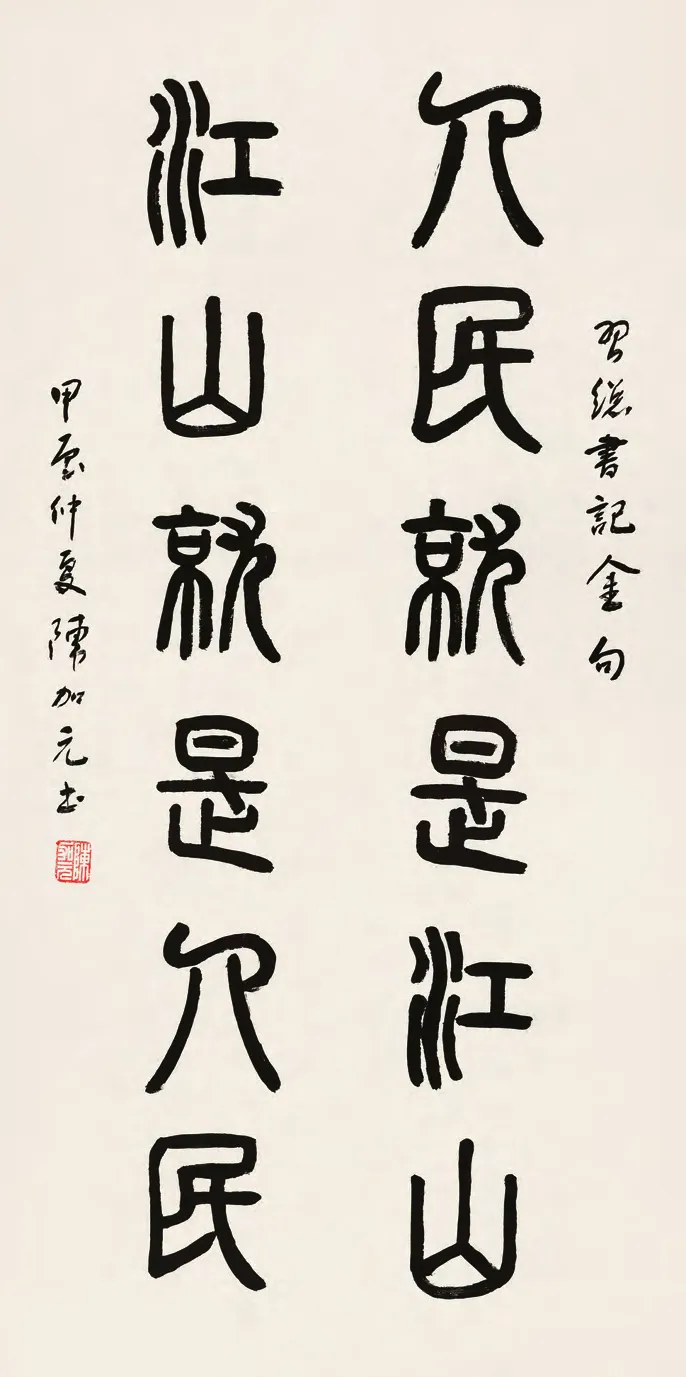 習總書記金句
人民就是江山
江山就是人民
甲辰仲夏陳加元书
陳加元